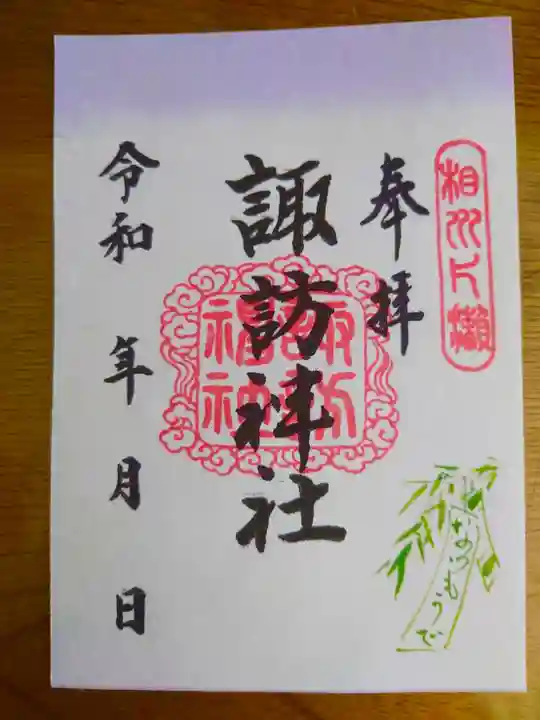 相州片瀬
奉拝
諏訪神社
令和 年 月 日
なつもうで